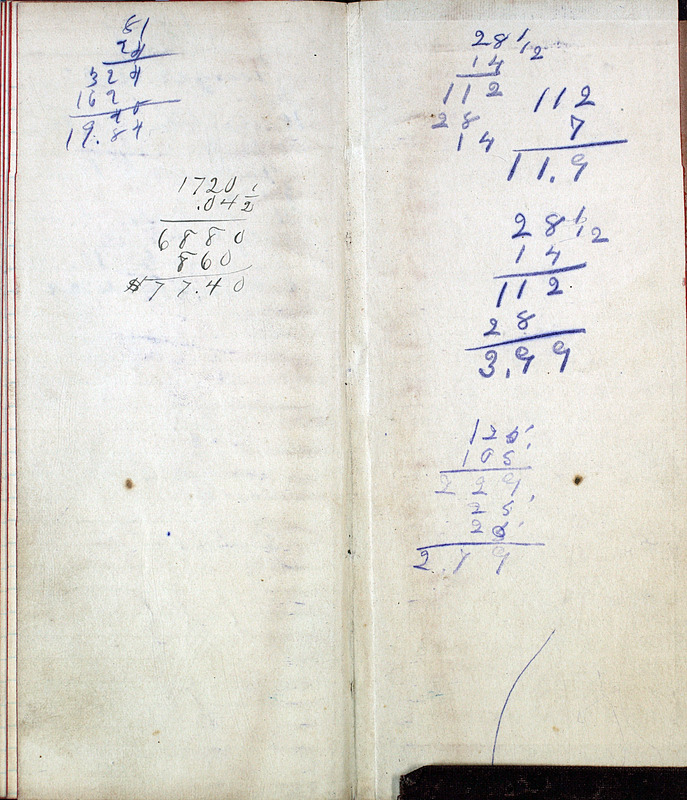 81
24
324
162
19.84
1720 1/2
.04
6880
860
$77.40
28 1/2
14
112
28
14
112
7
11.9
28 1/2
14
112
28
3.99
125
105
229
25
25
2.79